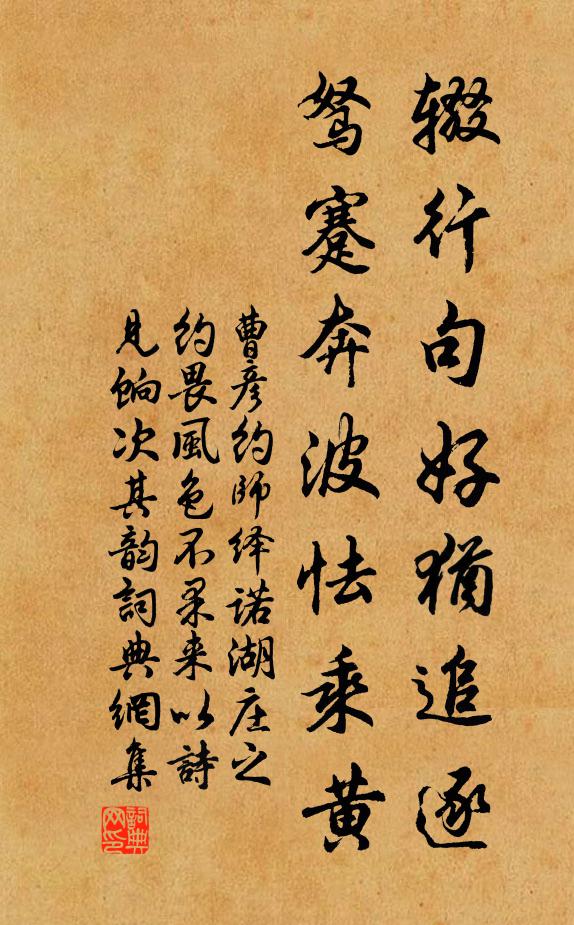 辍行句好犹追逐
驽蹇奔波怯乘黄
曹彦约师绎诺湖庄之
约畏風色不果来以詩
見餉次其韵詞典網集
詞典网印